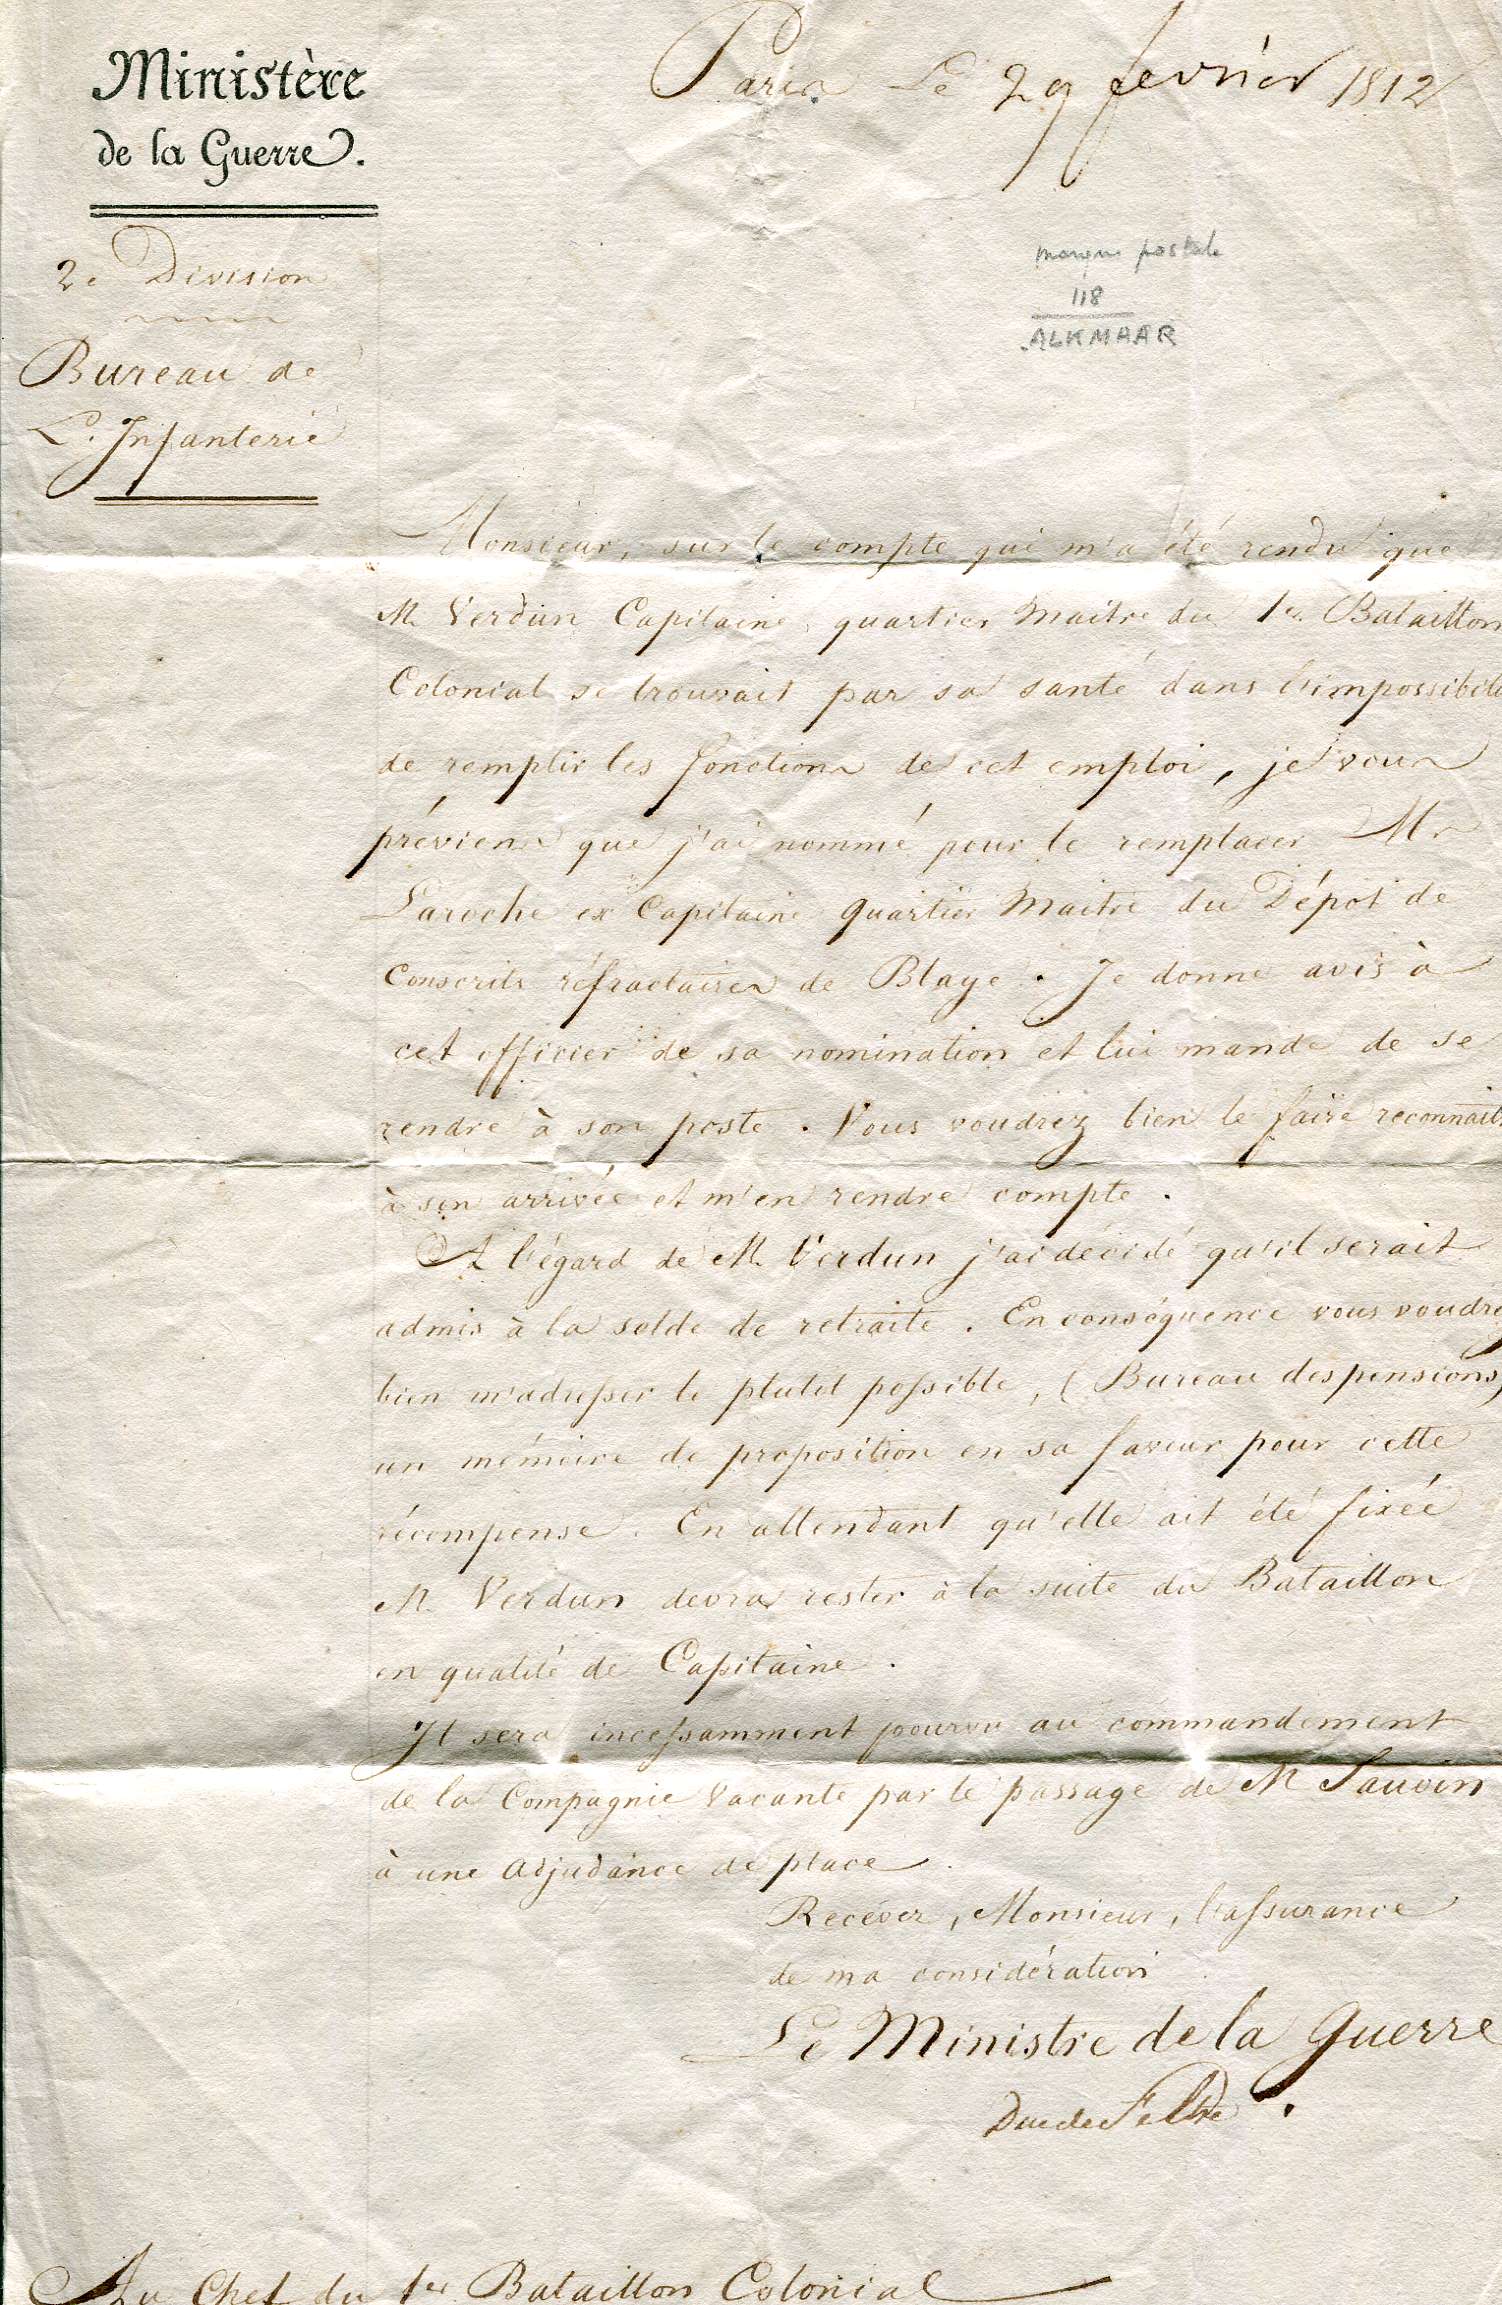 Ministère
de la Guerre.
Paris Le 29 février 1812
2e Division
Bureau de
L'Infanterie
marque postale
118
ALKMAAR
Monsieur, sur le compte qui m'a été rendu que
M. Verdun Capitaine quartier maitre du 1er Bataillon
Colonial se trouvait par sa santé dans l'impossibilité
de remplir les fonctions de cet emploi, je vous
préviens que j'ai nommé pour le remplacer Mr
Laroche ex Capitaine quartier maitre du Dépot de
Conscrits réfractaires de Blaye. Je donne avis à
cet officier de sa nomination et lui mande de se
rendre à son poste. Vous voudrez bien le faire reconnaitre
à son arrivée et m'en rendre compte.
A l'égard de M. Verdun j'ai décidé qu'il serait
admis à la solde de retraite. En conséquence vous voudrez
bien m'adresser le plutot possible, (Bureau des pensions)
un mémoire de proposition en sa faveur pour cette
récompense. En attendant qu'elle ait été fixée
M. Verdun devra rester à la suite du Bataillon
en qualité de Capitaine.
Il sera incessamment pourvu au commandement
de la Compagnie vacante par le passage de M Sauvin
à une adjudance de place
Recever, Monsieur, l'assurance
de ma considération
Le Ministre de la Guerre
Duc de Feltre.
Au Chef du 1er Bataillon Colonial